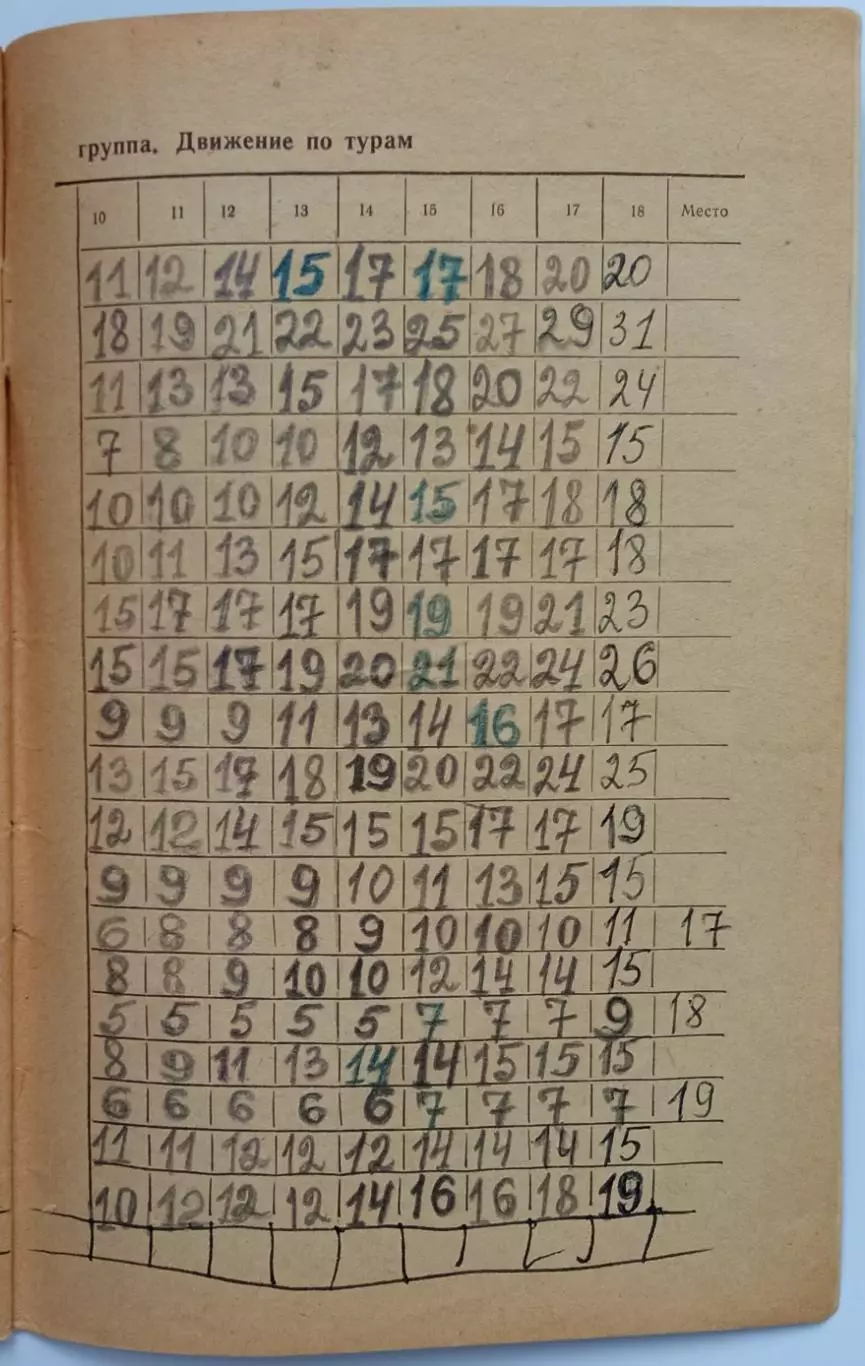 группа. Движение по турам
10 11 12 13 14 15 16 17 18 Место
11 12 14 15 17 17 18 20 20
18 19 21 22 23 25 27 29 31
11 13 13 15 17 18 20 22 24
7 8 10 10 12 13 14 15 15
10 10 10 12 14 15 17 18 18
10 11 13 15 17 17 17 17 18
15 17 17 17 19 19 19 21 23
15 15 17 19 20 21 22 24 26
9 9 9 11 13 14 16 17 17
13 15 17 18 19 20 22 24 25
12 12 14 15 15 15 17 17 19
9 9 9 9 10 11 13 15 15
6 8 8 8 9 10 10 10 11 17
8 8 9 10 10 12 14 14 15
5 5 5 5 5 7 7 7 9 18
8 9 11 13 14 14 15 15 15
6 6 6 6 6 7 7 7 7 19
11 11 12 12 12 14 14 14 15
10 12 12 12 14 16 16 18 19